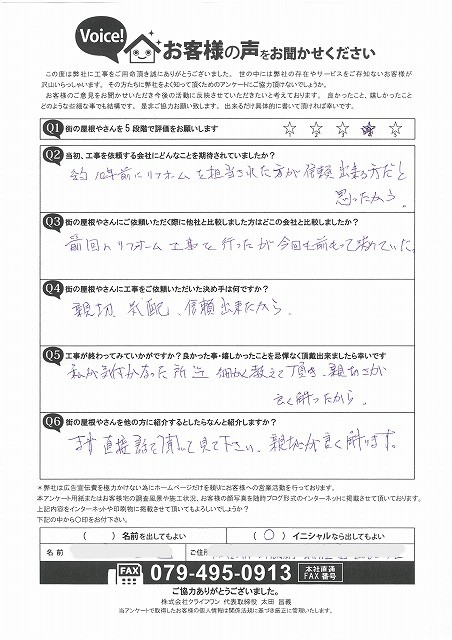 Voice!
お客様の声をお聞かせください
この度は弊社に工事をご用命頂き誠にありがとうございました。 世の中には弊社の存在やサービスをご存知ないお客様が
沢山いらっしゃいます。 その方たちに弊社をよく知って頂くためのアンケートにご協力頂けないでしょうか。
お客様のご意見をお聞かせいただき今後の活動に反映させていただきたいと考えております。 良かったこと、嬉しかったこと
どのような些細な事でも結構です。 是非ご協力お願い致します。 出来るだけ具体的に書いて頂ければ幸いです。
Q1 街の屋根やさんを5段階で評価をお願いします
☆ ☆ ☆ ☆ ☆
1 2 3 5
Q2 当初、工事を依頼する会社にどんなことを期待されていましたか?
約10年前にリフォームを担当された方が信頼出来る方だと
思ったから。
Q3 街の屋根やさんにご依頼いただく際に他社と比較しました方はどこの会社と比較しましたか?
前回のリフォーム工事を行ったが今回も前もって決めていた。
Q4 街の屋根やさんに工事をご依頼いただいた決め手は何ですか?
親切、信頼出来たから。
Q5 工事が終わってみていかがですか?良かった事・嬉しかったことを忌憚なく頂戴出来ましたら幸いです
私が気付かなかった所迄細かく教えて頂き、親切さが
良く解ったから。
Q6 街の屋根やさんを他の方に紹介するとしたらなんと紹介しますか?
まず直接話て頂して見て下さい、親切が良く解ります。
*弊社は広告宣伝費を極力かけない為にホームページだけを頼りにお客様への営業活動を行っております。
本アンケート用紙またはお客様宅の調査風景や施工状況、お客様の顔写真を随時ブログ形式のインターネットに掲載させて頂いております。
上記内容をインターネットや印刷物に掲載させて頂いてもよろしいでしょうか?
下記の中から〇印をお付下さい。
( ) 名前を出してもよい ( 〇 ) イニシャルなら出してもよい
名 前 ご住所
FAX 079-495-0913 本社直通
FAX 番号
ご協力ありがとうございました。
株式会社クライフワン 代表取締役 太田 昌義
当アンケートで取得したお客様の個人情報は関係法規に基づき厳正に管理いたします。